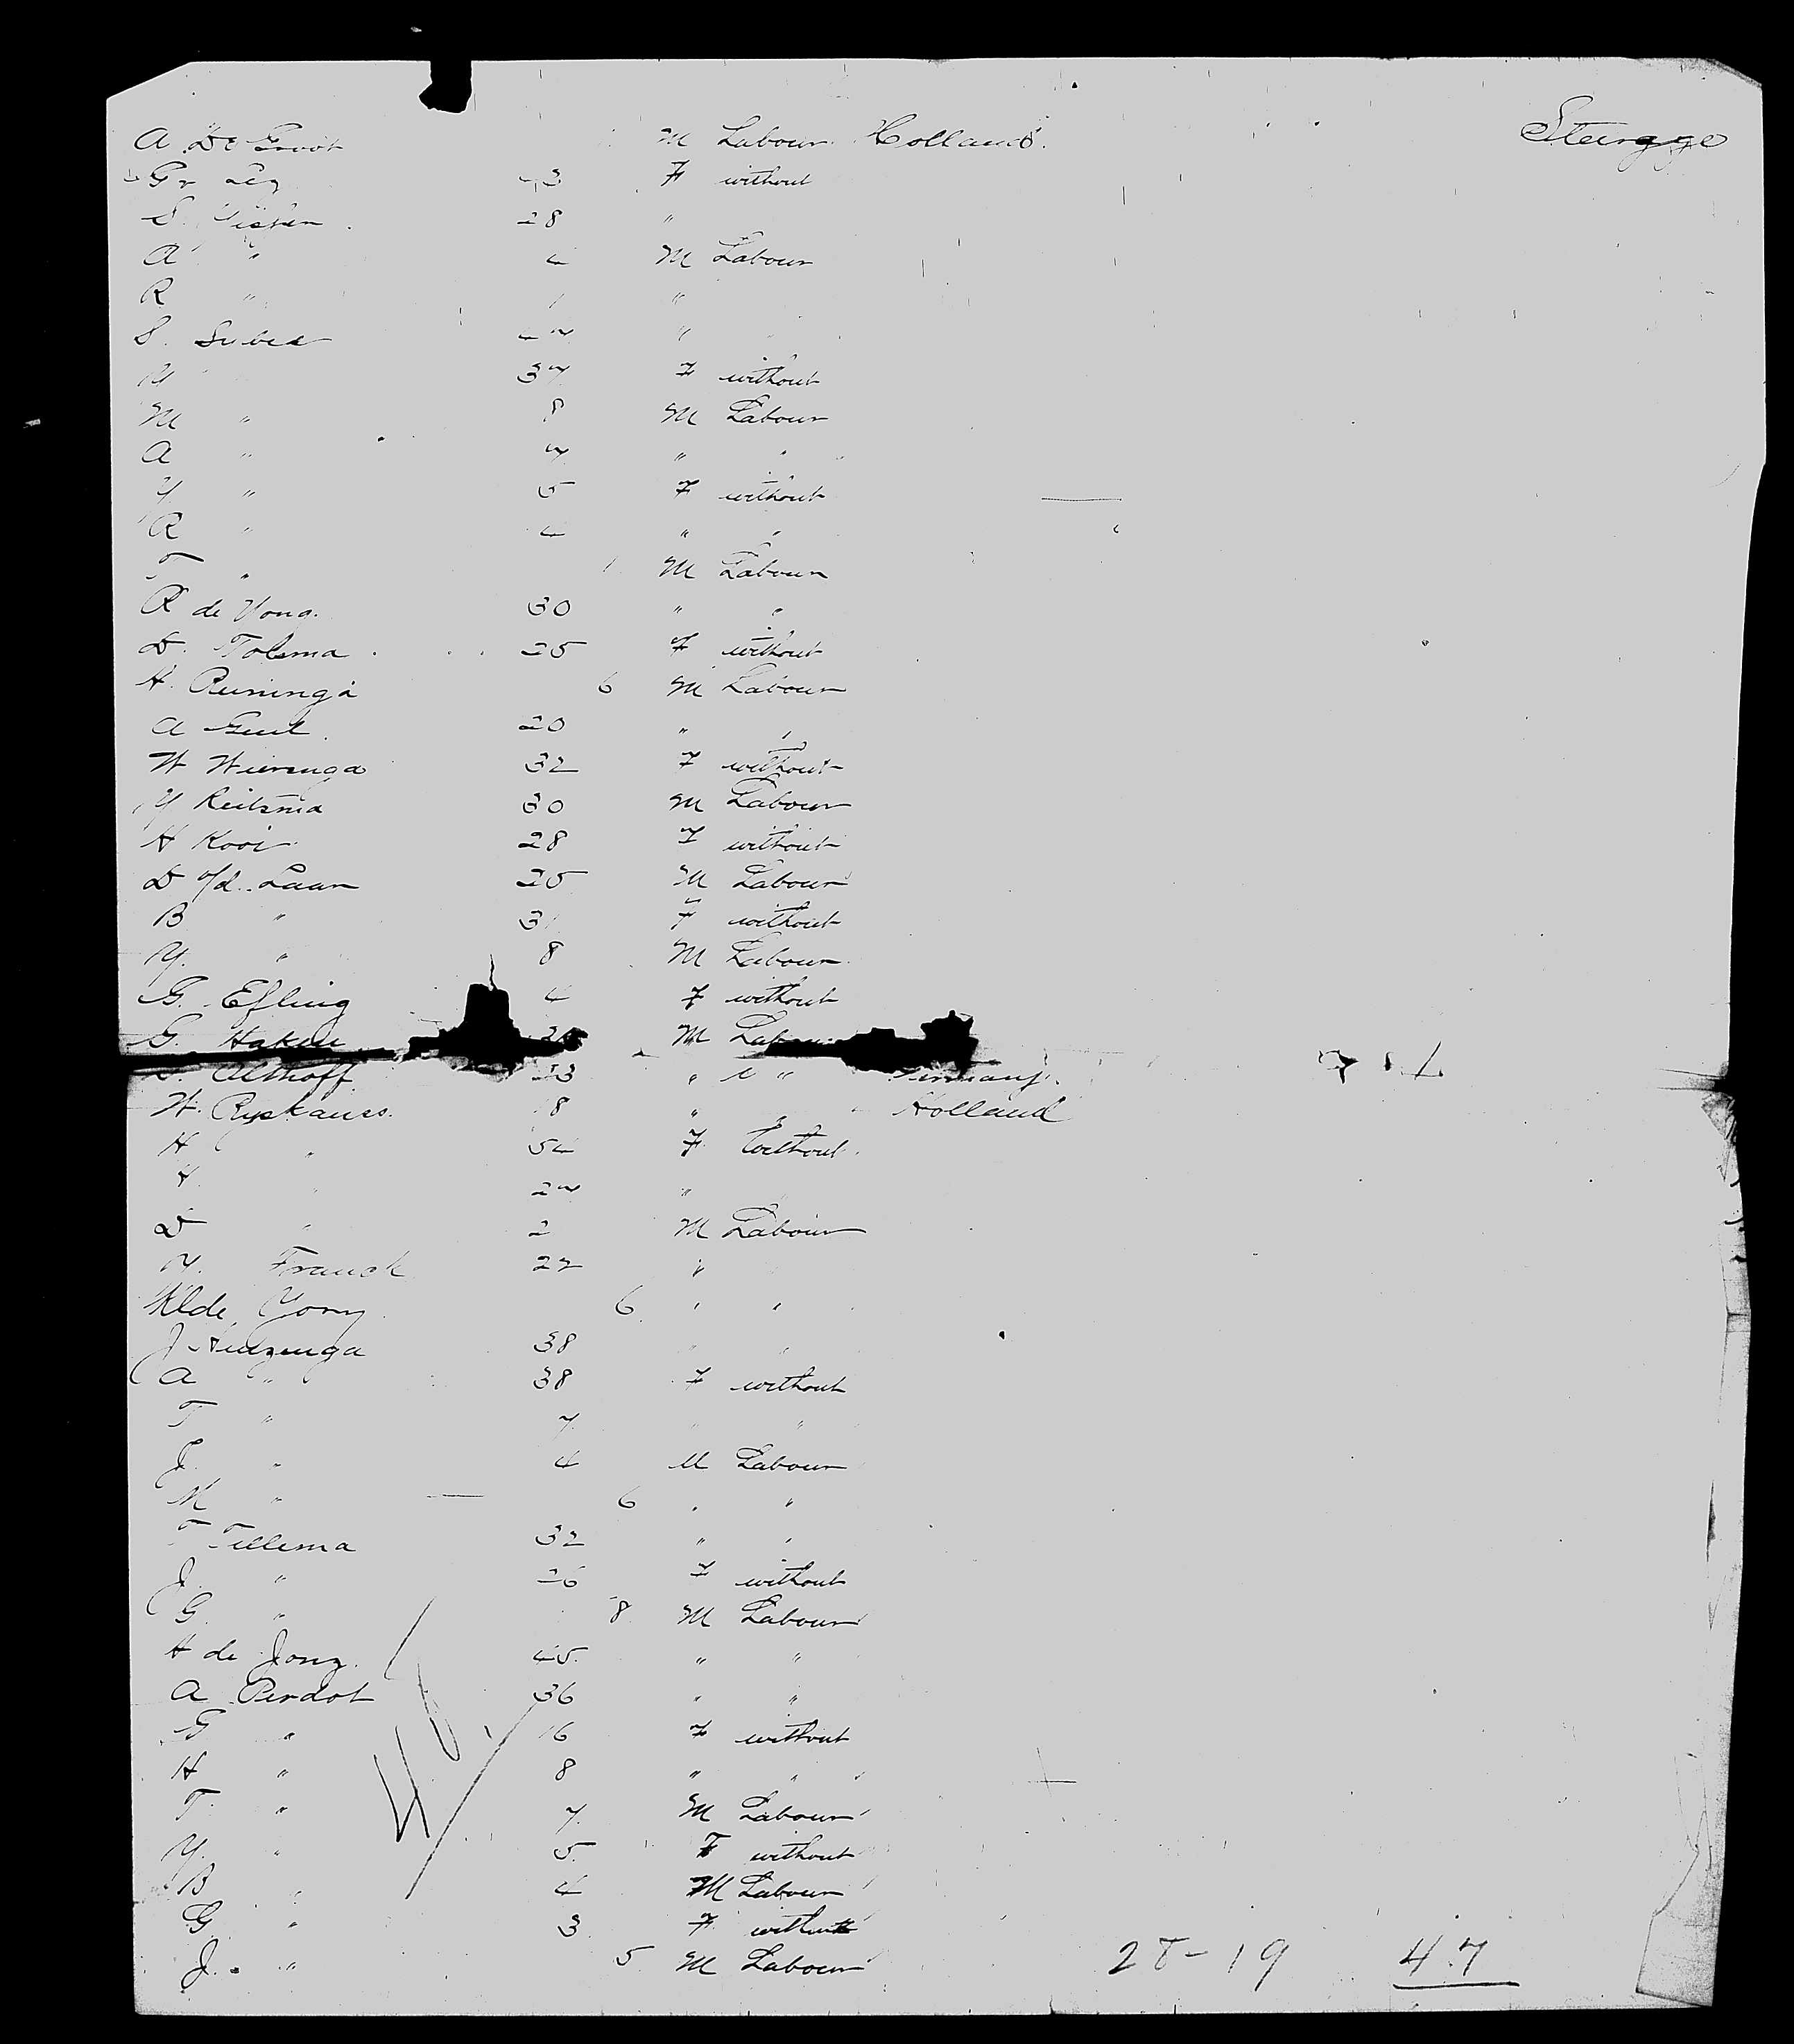 Steerage
A. De Groot M Labour Holland.
Gr 43 F without
S. Visser 28 "
A " 4 M Labour
R " 1 "
S. 47 "
Y 37 F without
M " 8 M Labour
A " 7 " "
Y " 5 F without
R " 4 " "
T " 1 M Labour
R de Yong. 30 " "
D. Tolsma 25 F without
H. Puninga 6 M Labour
A 20 " "
W Wierenga 32 F without
Y Reitsma 30 M Labour
H Kooi 28 F without
D v/d. Laan 25 M Labour
B " 31 F without
Y. " 8 M Labour
G. Efling 4 F without
G. Haken M Labour
Althoff 23 " " Germany.
W. 8 " " Holland
H " 54 F without
Y " 27 "
D " 2 M Labour
Y. Franck 22 "
6 " "
J 38 " "
A " 38 F without
T " 7 " "
J. " 4 M Labour
M " 6 " "
T Tillema 32 " "
J. " 26 F without
G. " 8 M Labour
H de Jong. 45 " "
A Perdot 36 " "
G " 16 F without
H " 8 " "
T. " 7 M Labour
Y. " 5 F without
B " 4 M Labour
G " 3 F without
J. " 5 M Labour
28-19 47